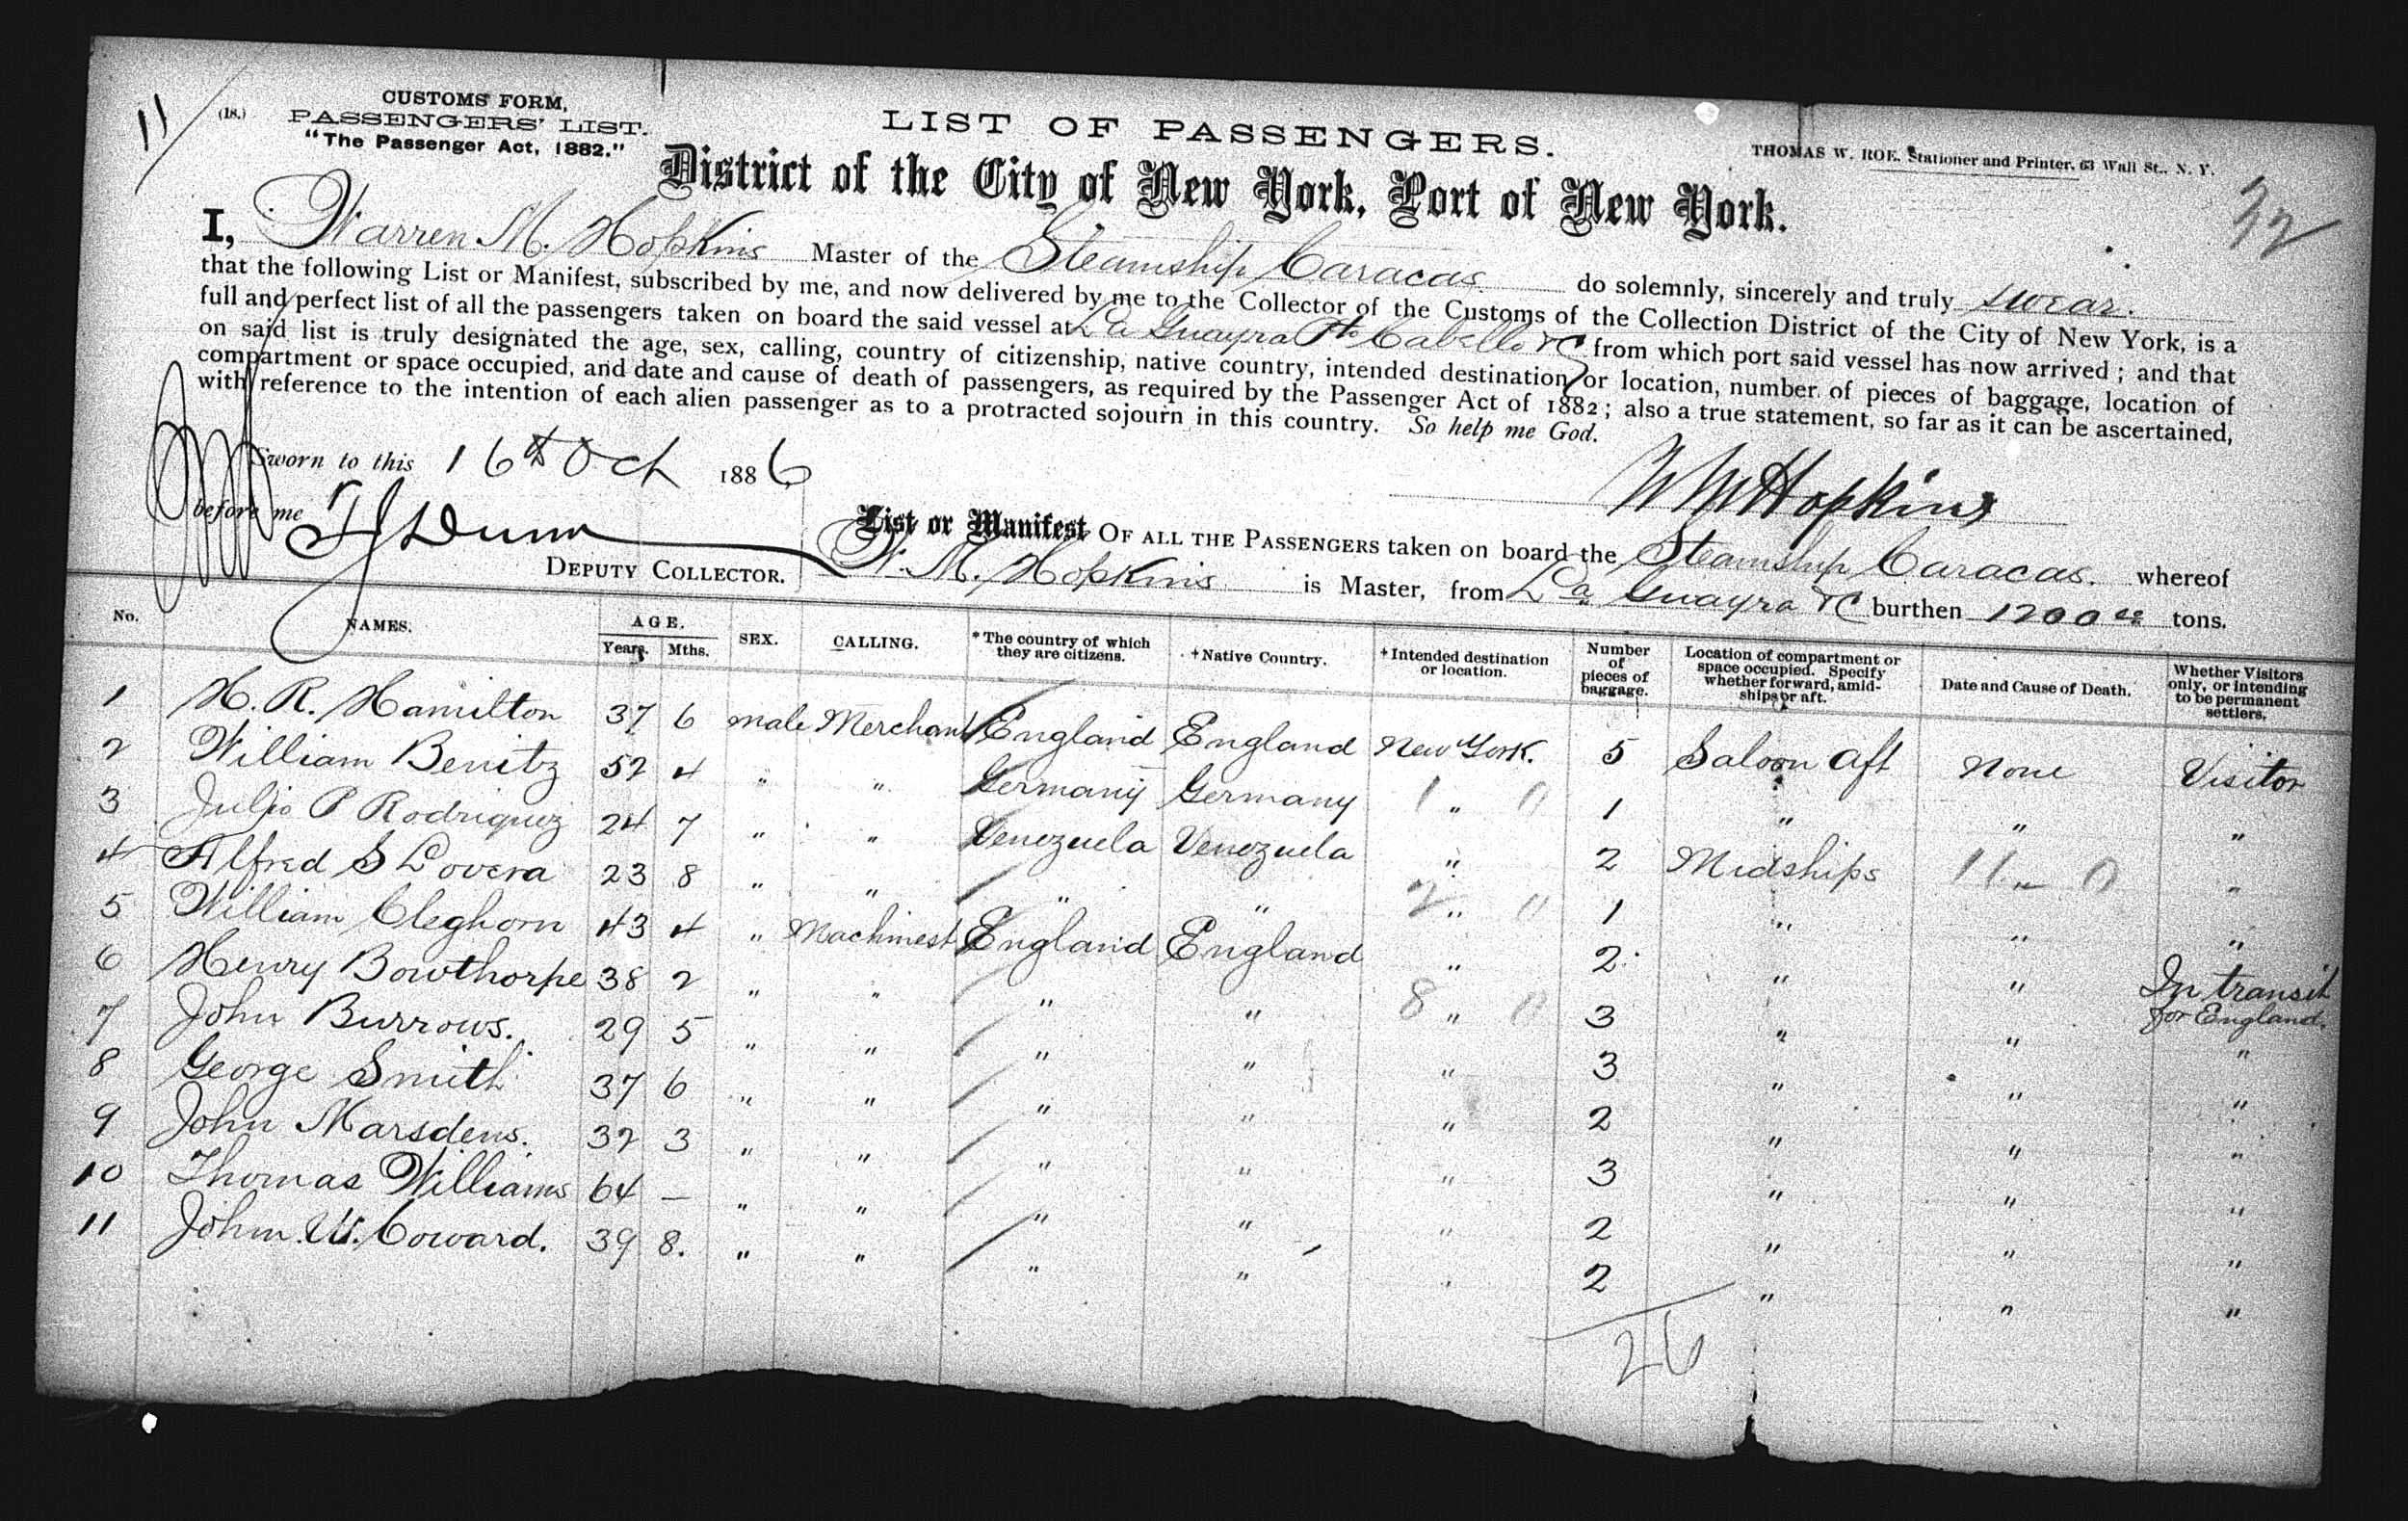 11
(18.)
CUSTOMS FORM,
PASSENGERS' LIST.
"The Passenger Act, 1882."
LIST OF PASSENGERS.
THOMAS W. ROE. Stationer and Printer, 63 Wall St., N. Y.
District of the City of New York, Port of New York.
I, Warren M. Hopkins Master of the Steamship Caracas do solemnly, sincerely and truly swear.
that the following List or Manifest, subscribed by me, and now delivered by me to the Collector of the Customs of the Collection District of the City of New York, is a
full and perfect list of all the passengers taken on board the said vessel at La Guayra Pto Cabello &C from which port said vessel has now arrived ; and that
on said list is truly designated the age, sex, calling, country of citizenship, native country, intended destination or location, number of pieces of baggage, location of
compartment or space occupied, and date and cause of death of passengers, as required by the Passenger Act of 1882 ; also a true statement, so far as it can be ascertained,
with reference to the intention of each alien passenger as to a protracted sojourn in this country. So help me God.
Sworn to this 16th Oct 1886
W M Hopkins
before me T J Dunn
DEPUTY COLLECTOR.
List or Manifest OF ALL THE PASSENGERS taken on board the Steamship Caracas. whereof
W. M. Hopkins is Master, from La Guayra &C burthen 1200 tons.
No. NAMES. AGE. Years. Mths. SEX. CALLING. * The country of which they are citizens. † Native Country. † Intended destination or location. Number of pieces of baggage. Location of compartment or space occupied. Specify whether forward, amidships or aft. Date and Cause of Death. Whether Visitors only, or intending to be permanent settlers.
1 H. R. Hamilton 37 6 male Merchant England England New York. 5 Saloon aft None Visitor
2 William Benitz 52 4 " " Germany Germany " 1 " " "
3 Julio P Rodriguez 24 7 " " Venezuela Venezuela " 2 Midships " "
4 Alfred S Lovera 23 8 " " " " " 1 " " "
5 William Cleghorn 43 4 " Machinest England England " 2 " " In transit for England.
6 Henry Bowthorpe 38 2 " " " " " 3 " " "
7 John Burrows. 29 5 " " " " " 3 " " "
8 George Smith 37 6 " " " " " 2 " " "
9 John Marsdens. 32 3 " " " " " 3 " " "
10 Thomas Williams 64 — " " " " " 2 " " "
11 John W. Coward. 39 8. " " " " " 2 " " "
26